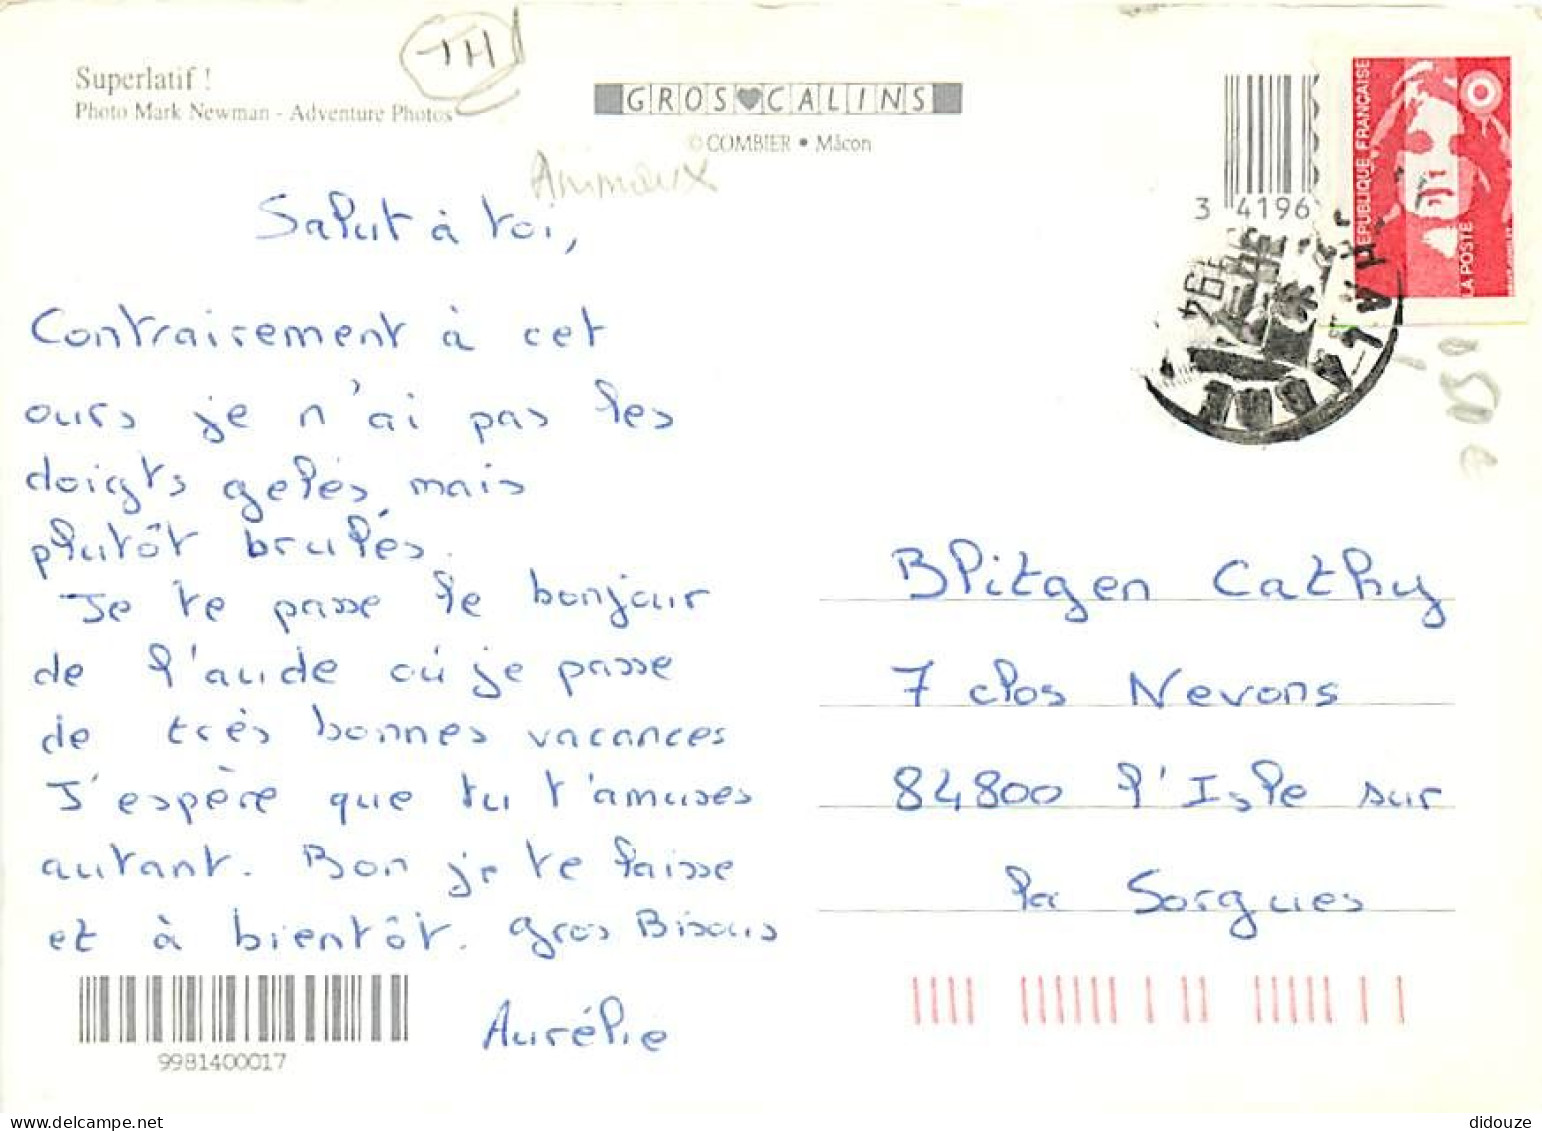 TH
Superlatif !
Photo Mark Newman - Adventure Photos
GROS CALINS
© COMBIER • Mâcon
Animaux
3 4196
REPUBLIQUE FRANÇAISE
LA POSTE
0,50 e
Salut à toi,
Contrairement à cet
ours je n'ai pas les
doigts gelés, mais
plutôt brulés.
Je te passe le bonjour
de l'aude où je passe
de très bonnes vacances
J'espère que tu t'amuses
autant. Bon je te laisse
et à bientôt. Gros Bisous
Aurélie
Blitgen Cathy
7 clos Nevons
84800 l'Isle sur
la Sorgues
9981400017
didouze